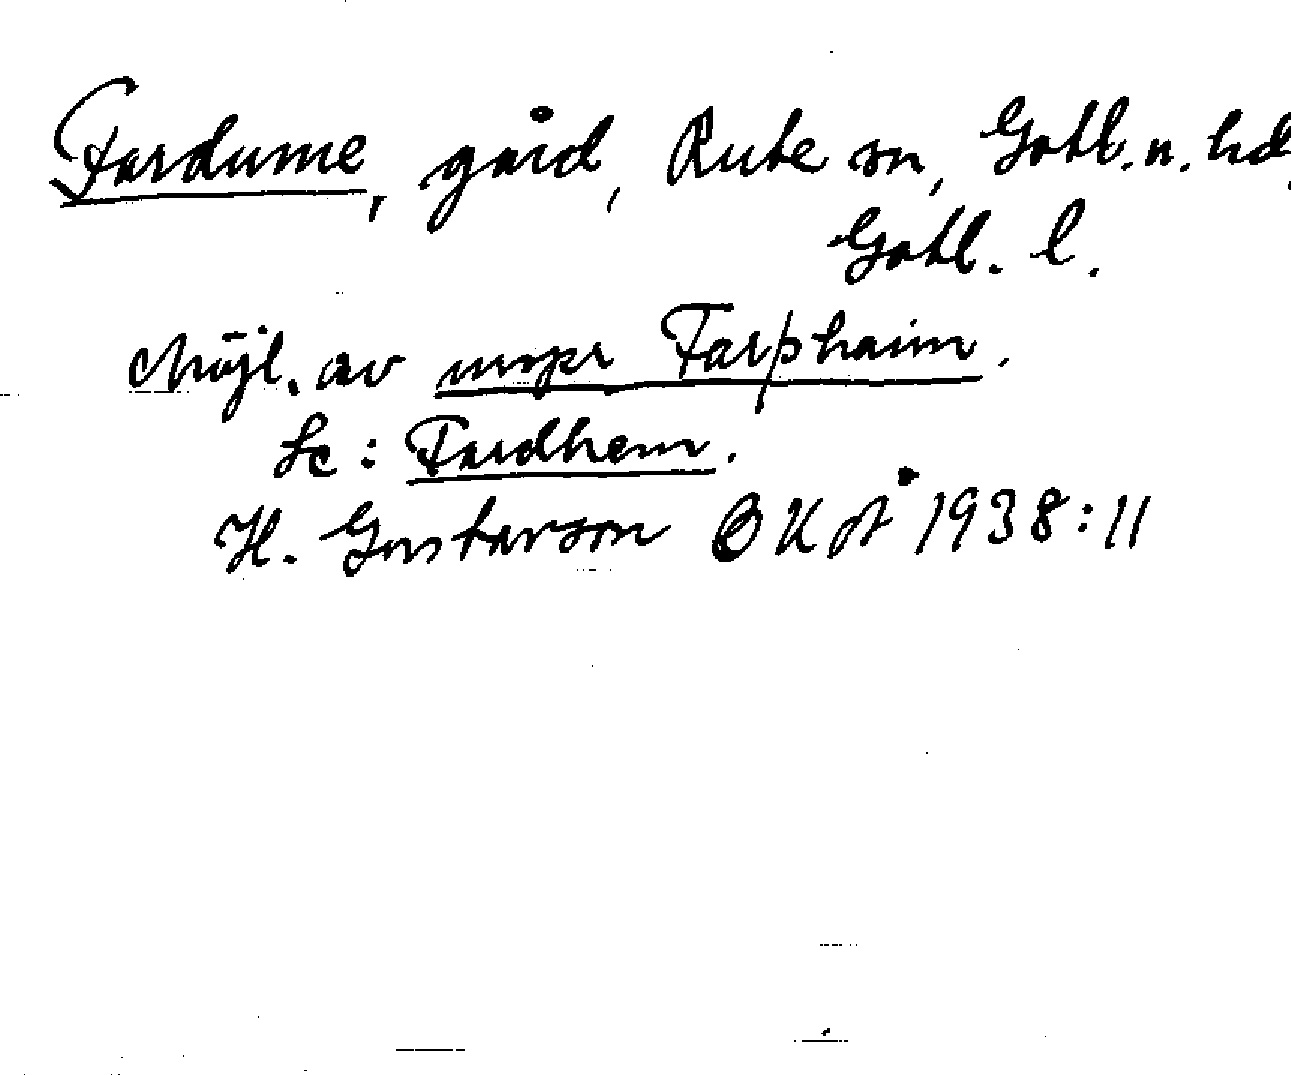 Fardume, gård, Rute sn, Gotl. n. hd,
Gotl. l.
Möjl. av Farþhaim.
Se: Fardhem.
H. Gustavson BKÅ 1938:11